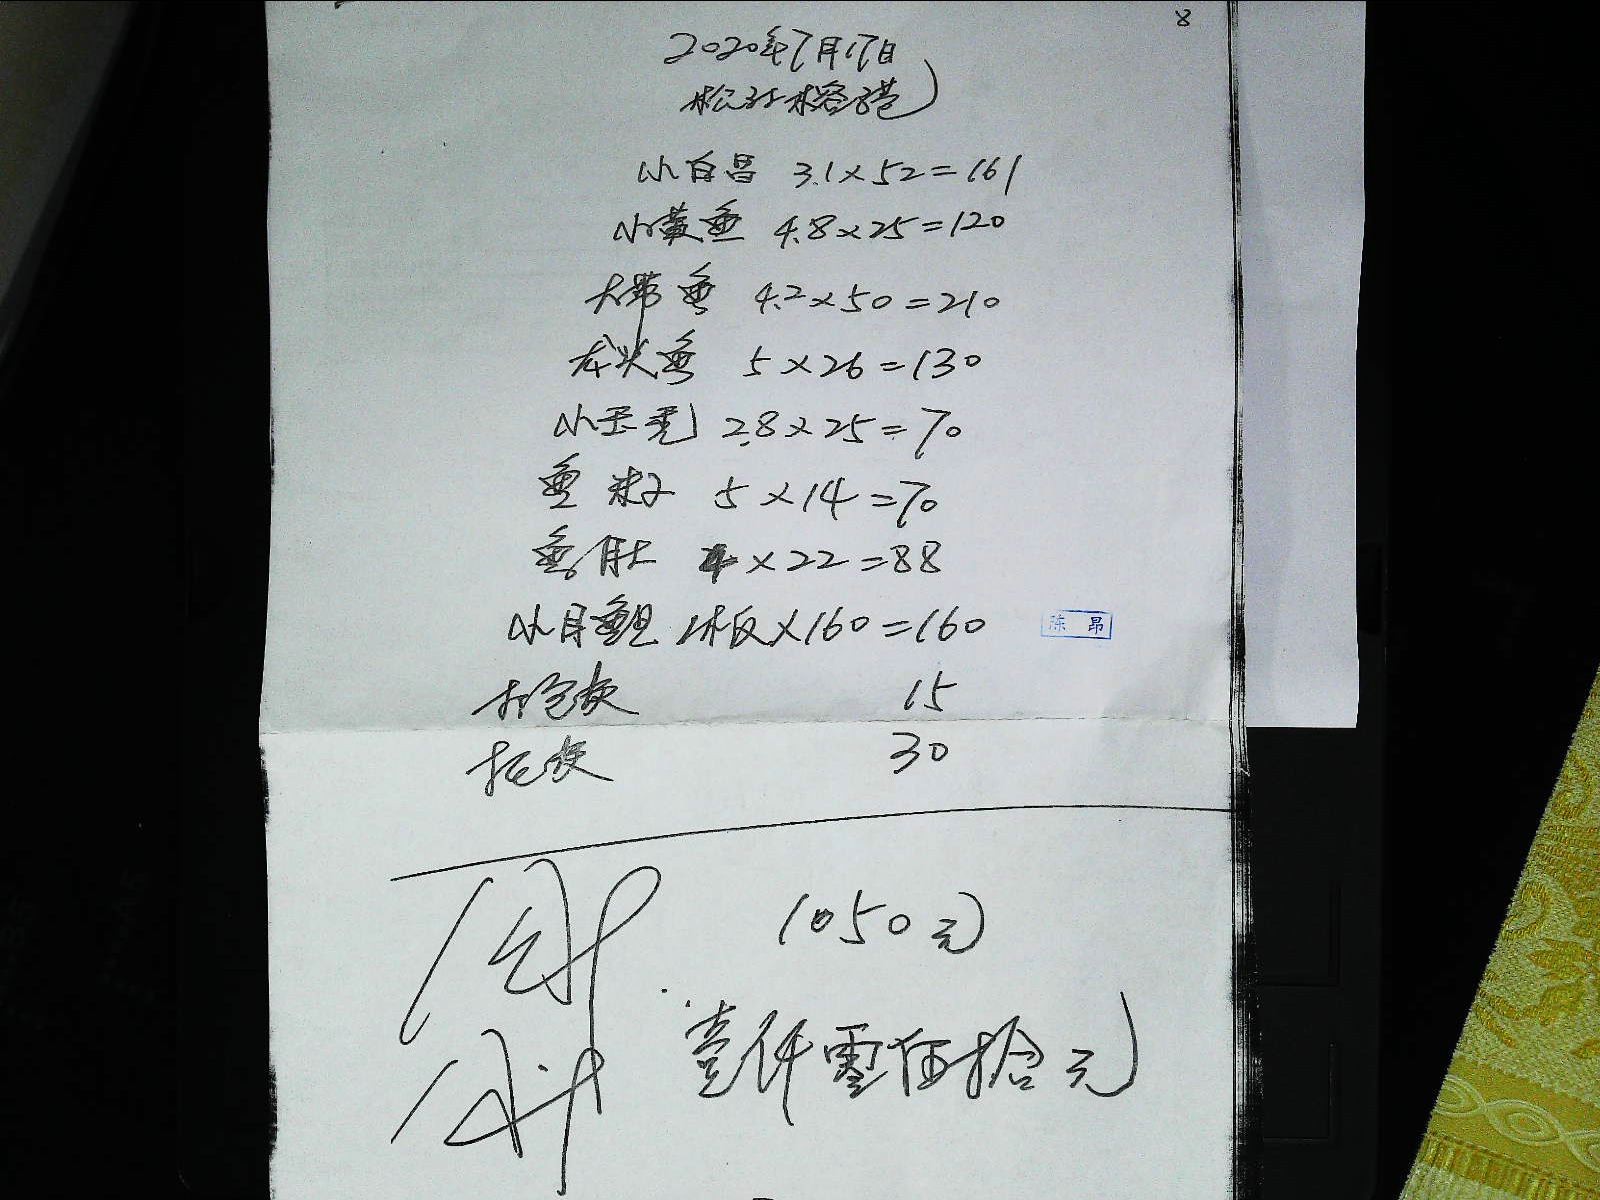 8
2020年7月17日
松江榕港
小白昌 3.1×52=161
小黄鱼 4.8×25=120
大带鱼 4.2×50=210
龙头鱼 5×26=130
小玉秃 2.8×25=70
鱼籽 5×14=70
鱼肚 4×22=88
小目鱼旦 1板×160=160
陈 昂
打包费 15
托费 30
1050元
壹仟零伍拾元